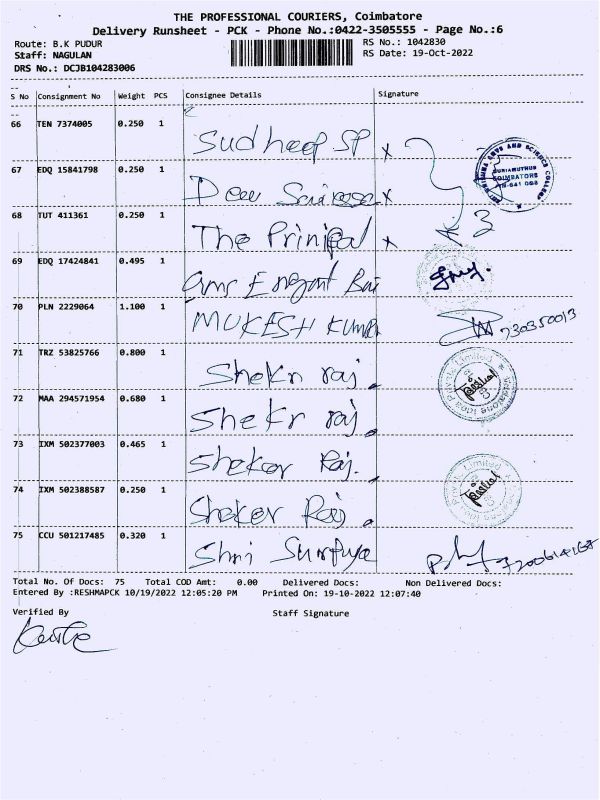 THE PROFESSIONAL COURIERS, Coimbatore
Delivery Runsheet - PCK - Phone No.:0422-3505555 - Page No.:6
Route: B.K PUDUR RS No.: 1042830
Staff: NAGULAN RS Date: 19-Oct-2022
DRS No.: DCJB104283006
S No Consignment No Weight PCS Consignee Details Signature
66 TEN 7374005 0.250 1 Sudheep SP x
67 EDQ 15841798 0.250 1 x
68 TUT 411361 0.250 1 The Prinipal x 3
69 EDQ 17424841 0.495 1
70 PLN 2229064 1.100 1 MUKESH KUMAR
71 TRZ 53825766 0.800 1 Shekr raj
72 MAA 294571954 0.680 1 Shekr raj
73 IXM 502377003 0.465 1 Sheker Raj.
74 IXM 502388587 0.250 1 Sheker Raj
75 CCU 501217485 0.320 1 Shri
Total No. Of Docs: 75 Total COD Amt: 0.00 Delivered Docs: Non Delivered Docs:
Entered By :RESHMAPCK 10/19/2022 12:05:20 PM Printed On: 19-10-2022 12:07:40
Verified By Staff Signature